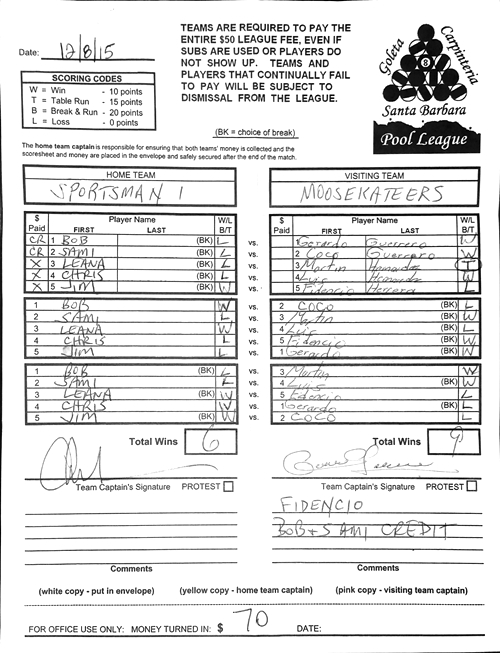 TEAMS ARE REQUIRED TO PAY THE
ENTIRE $50 LEAGUE FEE, EVEN IF
SUBS ARE USED OR PLAYERS DO
NOT SHOW UP. TEAMS AND
PLAYERS THAT CONTINUALLY FAIL
TO PAY WILL BE SUBJECT TO
DISMISSAL FROM THE LEAGUE.
Date: 12/8/15
SCORING CODES
W = Win - 10 points
T = Table Run - 15 points
B = Break & Run - 20 points
L = Loss - 0 points
Goleta Carpinteria
8
Santa Barbara
Pool League
(BK = choice of break)
The home team captain is responsible for ensuring that both teams' money is collected and the
scoresheet and money are placed in the envelope and safely secured after the end of the match.
HOME TEAM VISITING TEAM
SPORTSMAN 1 MOOSEKATEERS
$ Paid Player Name FIRST LAST W/L B/T $ Paid Player Name FIRST LAST W/L B/T
CR 1 BOB (BK) L vs. 1 Gerardo Guerrero W
CR 2 SAMI (BK) L vs. 2 Coco Guerrero W
X 3 LEANA (BK) L vs. 3 Martin Hernandez T
X 4 CHRIS (BK) L vs. 4 Luis Hernandez W
X 5 JIM (BK) W vs. 5 Fidencio Herrera L
1 BOB W vs. 2 COCO (BK) L
2 SAMI L vs. 3 Martin (BK) W
3 LEANA W vs. 4 Luis (BK) L
4 CHRIS L vs. 5 Fidencio (BK) W
5 JIM L vs. 1 Gerardo (BK) W
1 BOB (BK) L vs. 3 Martin W
2 SAMI L vs. 4 Luis (BK) W
3 LEANA (BK) W vs. 5 Fidencio L
4 CHRIS W vs. 1 Gerardo (BK) L
5 JIM (BK) W vs. 2 COCO L
Total Wins 6 Total Wins 9
Team Captain's Signature PROTEST Team Captain's Signature PROTEST
FIDENCIO
BOB + SAMI CREDIT
Comments Comments
(white copy - put in envelope) (yellow copy - home team captain) (pink copy - visiting team captain)
FOR OFFICE USE ONLY: MONEY TURNED IN: $ 70 DATE: